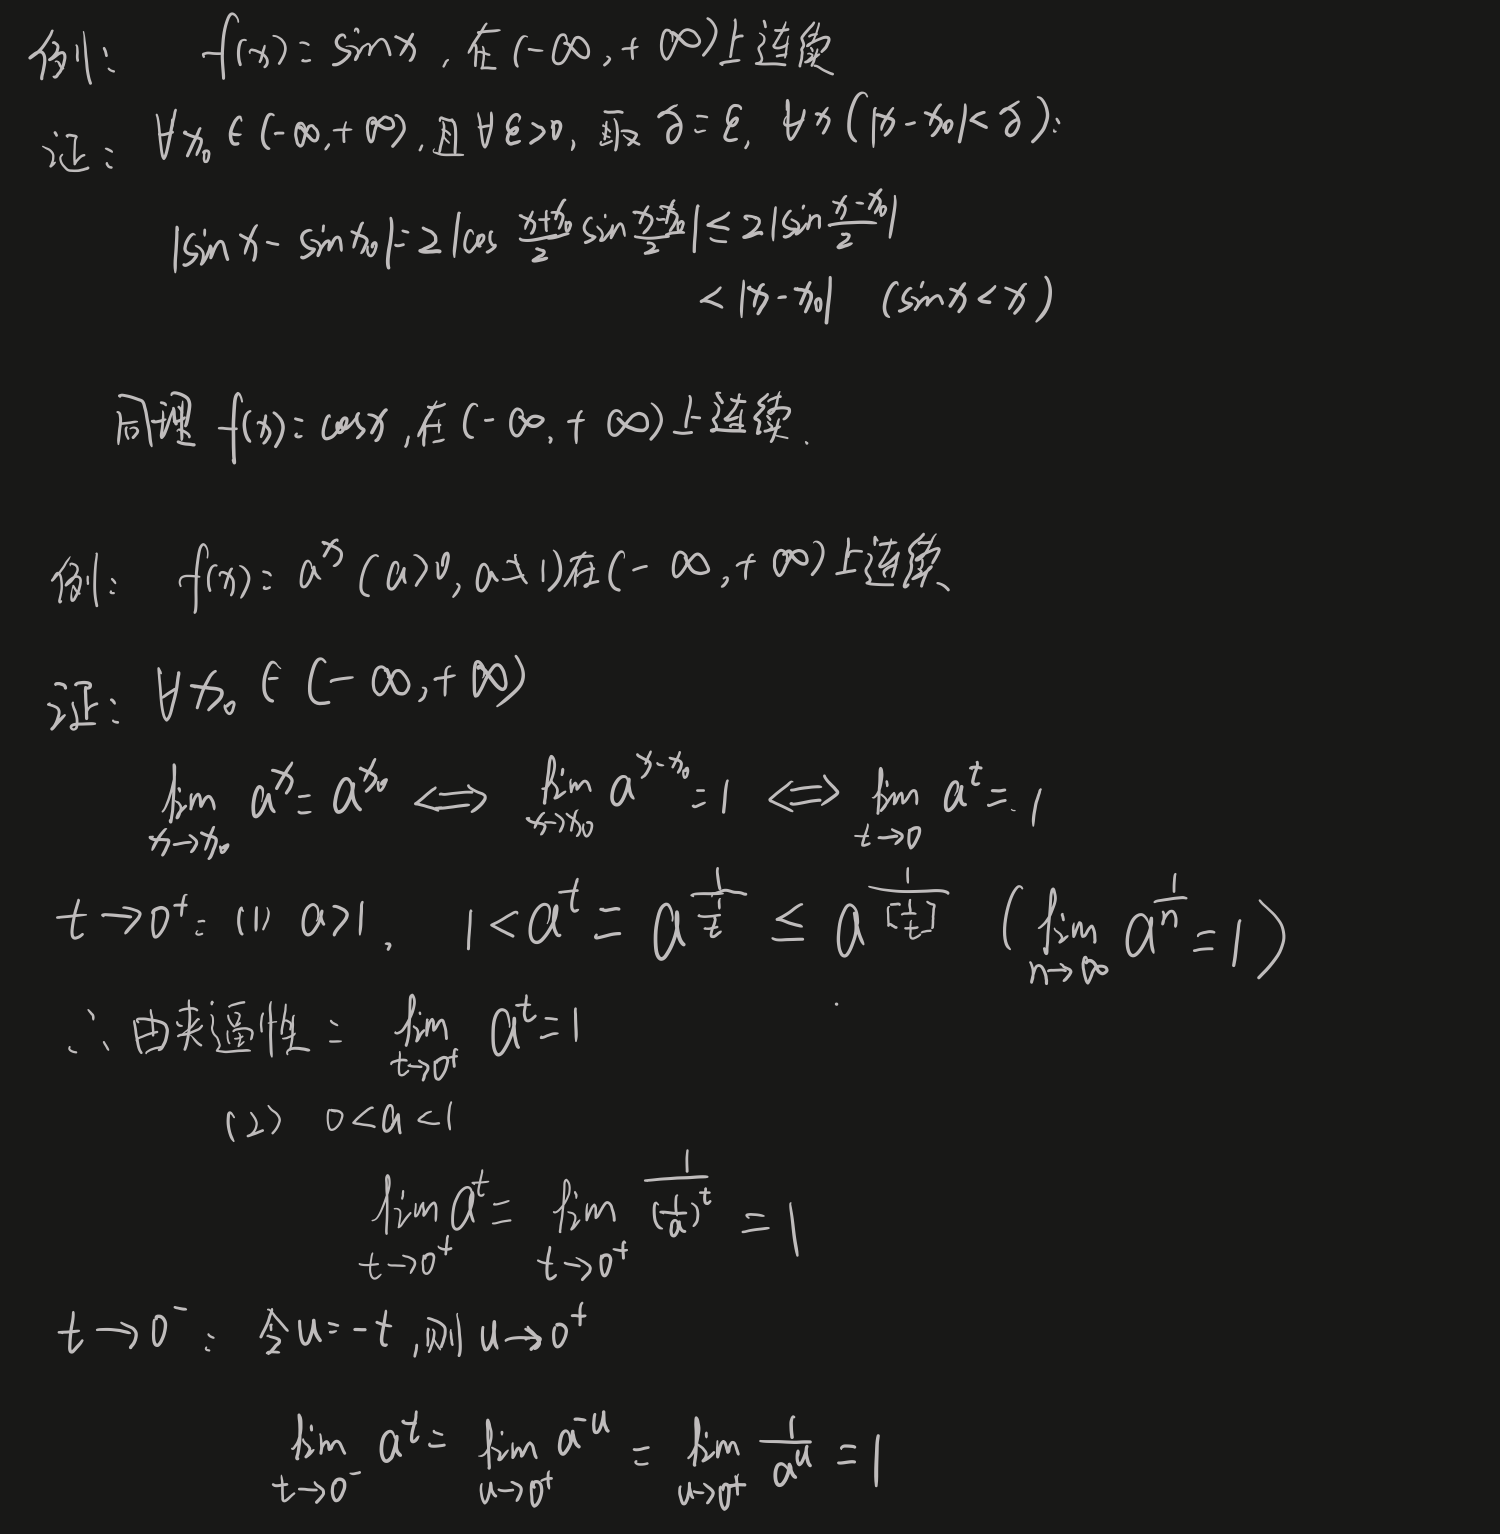 例: f(x)=sinx,在(-∞,+∞)上连续
证: ∀x₀∈(-∞,+∞),且∀ε>0,取δ=ε,∀x(|x-x₀|<δ):
|sinx-sinx₀|=2|cos (x+x₀)/2 sin (x-x₀)/2|≤2|sin (x-x₀)/2|
<|x-x₀| (sinx<x)
同理f(x)=cosx,在(-∞,+∞)上连续.
例: f(x)=aˣ(a>0,a≠1)在(-∞,+∞)上连续、
证: ∀x₀∈(-∞,+∞)
lim_{x→x₀} a^x=a^{x₀} ⟺ lim_{x→x₀} a^{x-x₀}=1 ⟺ lim_{t→0} a^t=1
t→0⁺: (1) a>1, 1<a^t=a^{1/(1/t)}≤a^{1/[1/t]} (lim_{n→∞} a^{1/n}=1)
∴由夹逼性: lim_{t→0⁺} a^t=1
(2) 0<a<1
lim_{t→0⁺} a^t=lim_{t→0⁺} 1/(1/a)^t=1
t→0⁻: 令u=-t,则u→0⁺
lim_{t→0⁻} a^t=lim_{u→0⁺} a^{-u}=lim_{u→0⁺} 1/a^u=1